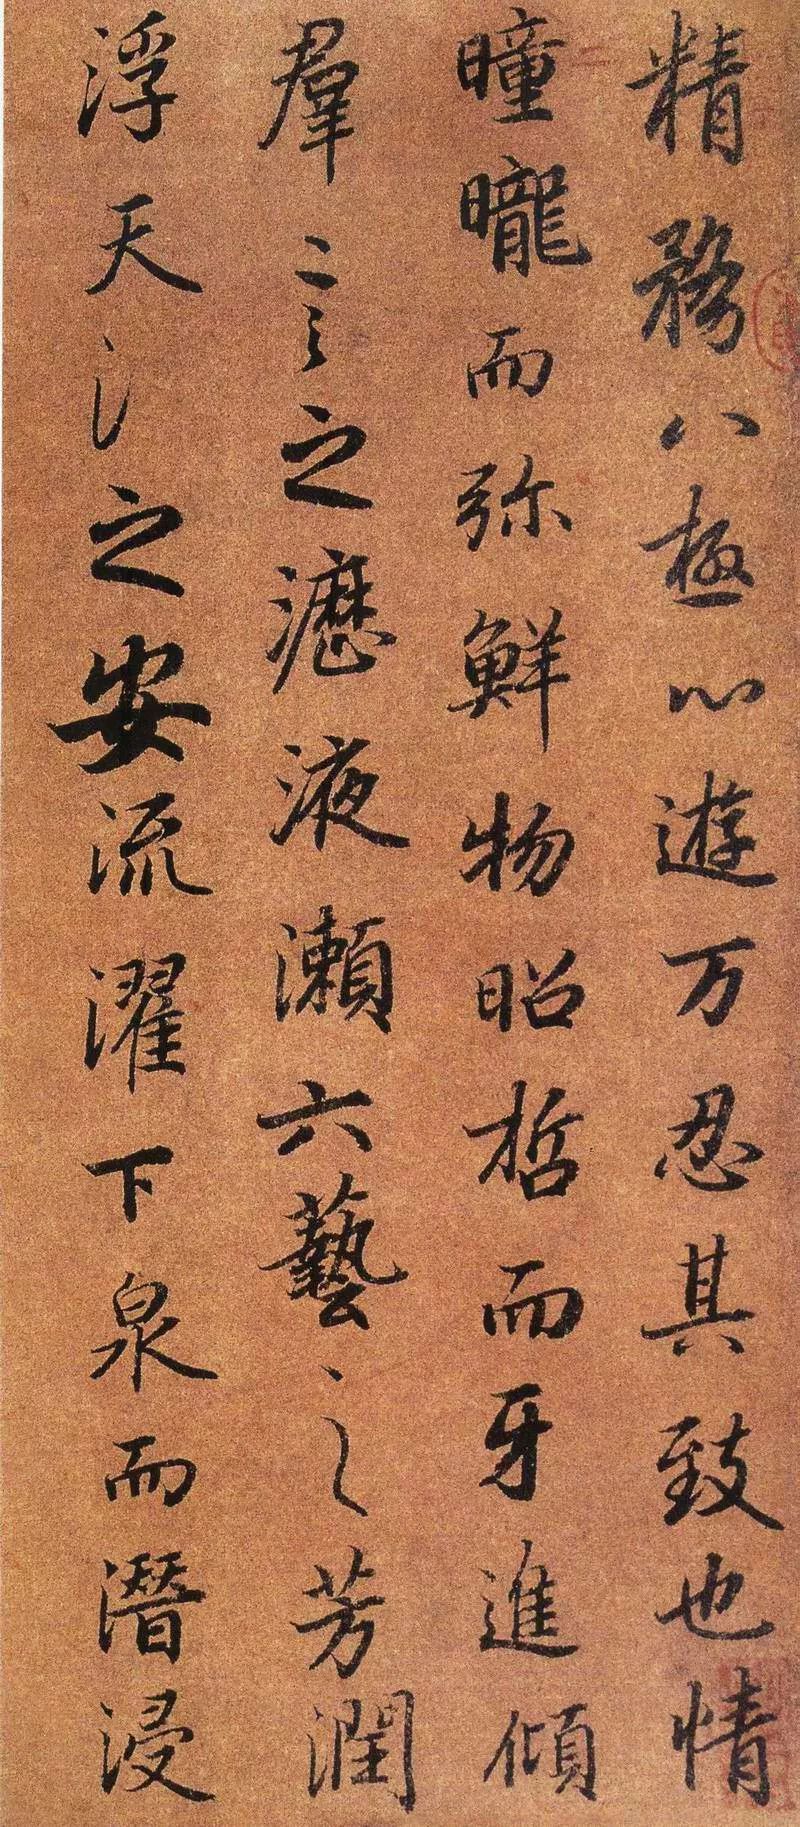 精務八極心遊万忍其致也情
曈曨而弥鮮物昭哲而牙進傾
羣言之瀝液瀨六藝之芳潤
浮天之安流濯下泉而潛浸